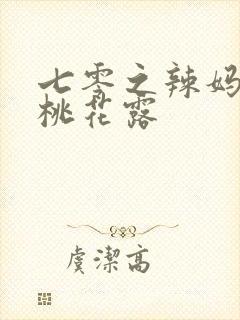 七零之辣妈
桃花露
虞潔高